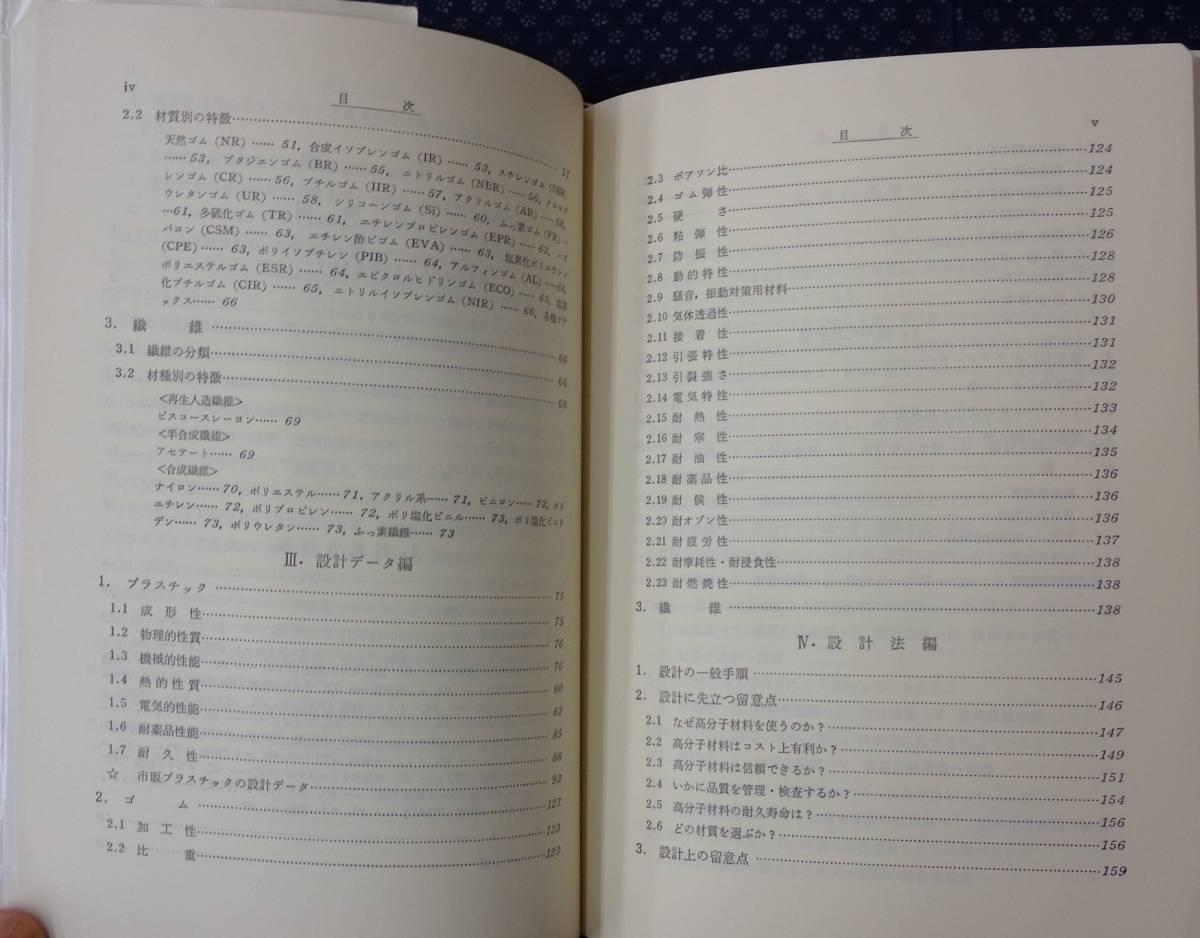 iv
目　次
2.2 材質別の特徴……51
天然ゴム(NR)……51, 合成イソプレンゴム(IR)……53, スチレンゴム(SBR)
……53, ブタジエンゴム(BR)……55, ニトリルゴム(NBR)……56, クロロプ
レンゴム(CR)……56, ブチルゴム(IIR)……57, アクリルゴム(AR)……58,
ウレタンゴム(UR)……58, シリコーンゴム(Si)……60, ふっ素ゴム(FR)…
…61, 多硫化ゴム(TR)……61, エチレンプロピレンゴム(EPR)……62, ハイ
パロン(CSM)……63, エチレン酢ビゴム(EVA)……63, 塩素化ポリエチレン
(CPE)……63, ポリイソブチレン(PIB)……64, アルフィンゴム(AL)……64,
ポリエステルゴム(ESR)……64, エピクロルヒドリンゴム(ECO)……65, 塩素
化ブチルゴム(CIR)……65, ニトリルイソプレンゴム(NIR)……66, 各種ラテ
ックス……66
3. 繊　維……66
3.1 繊維の分類……66
3.2 材種別の特徴……68
<再生人造繊維>
ビスコースレーヨン……69
<半合成繊維>
アセテート……69
<合成繊維>
ナイロン……70, ポリエステル……71, アクリル系……71, ビニロン……72, ポリ
エチレン……72, ポリプロピレン……72, ポリ塩化ビニル……73, ポリ塩化ビニリ
デン……73, ポリウレタン……73, ふっ素繊維……73
Ⅲ. 設計データ編
1. プラスチック……75
1.1 成形性……75
1.2 物理的性質……76
1.3 機械的性能……76
1.4 熱的性質……80
1.5 電気的性能……82
1.6 耐薬品性能……85
1.7 耐久性……88
☆ 市販プラスチックの設計データ……93
2. ゴ　ム……123
2.1 加工性……123
2.2 比　重……123
v
目　次
2.3 ポアソン比……124
2.4 ゴム弾性……124
2.5 硬　さ……125
2.6 粘弾性……125
2.7 防振性……126
2.8 動的特性……128
2.9 騒音,振動対策用材料……128
2.10 気体透過性……130
2.11 接着性……131
2.12 引張特性……131
2.13 引裂強さ……132
2.14 電気特性……132
2.15 耐熱性……133
2.16 耐寒性……134
2.17 耐油性……135
2.18 耐薬品性……136
2.19 耐候性……136
2.20 耐オゾン性……136
2.21 耐疲労性……137
2.22 耐摩耗性・耐浸食性……138
2.23 耐燃焼性……138
3. 繊　維……138
Ⅳ. 設計法編
1. 設計の一般手順……145
2. 設計に先立つ留意点……146
2.1 なぜ高分子材料を使うのか?……147
2.2 高分子材料はコスト上有利か?……149
2.3 高分子材料は信頼できるか?……151
2.4 いかに品質を管理・検査するか?……154
2.5 高分子材料の耐久寿命は?……156
2.6 どの材質を選ぶか?……156
3. 設計上の留意点……159